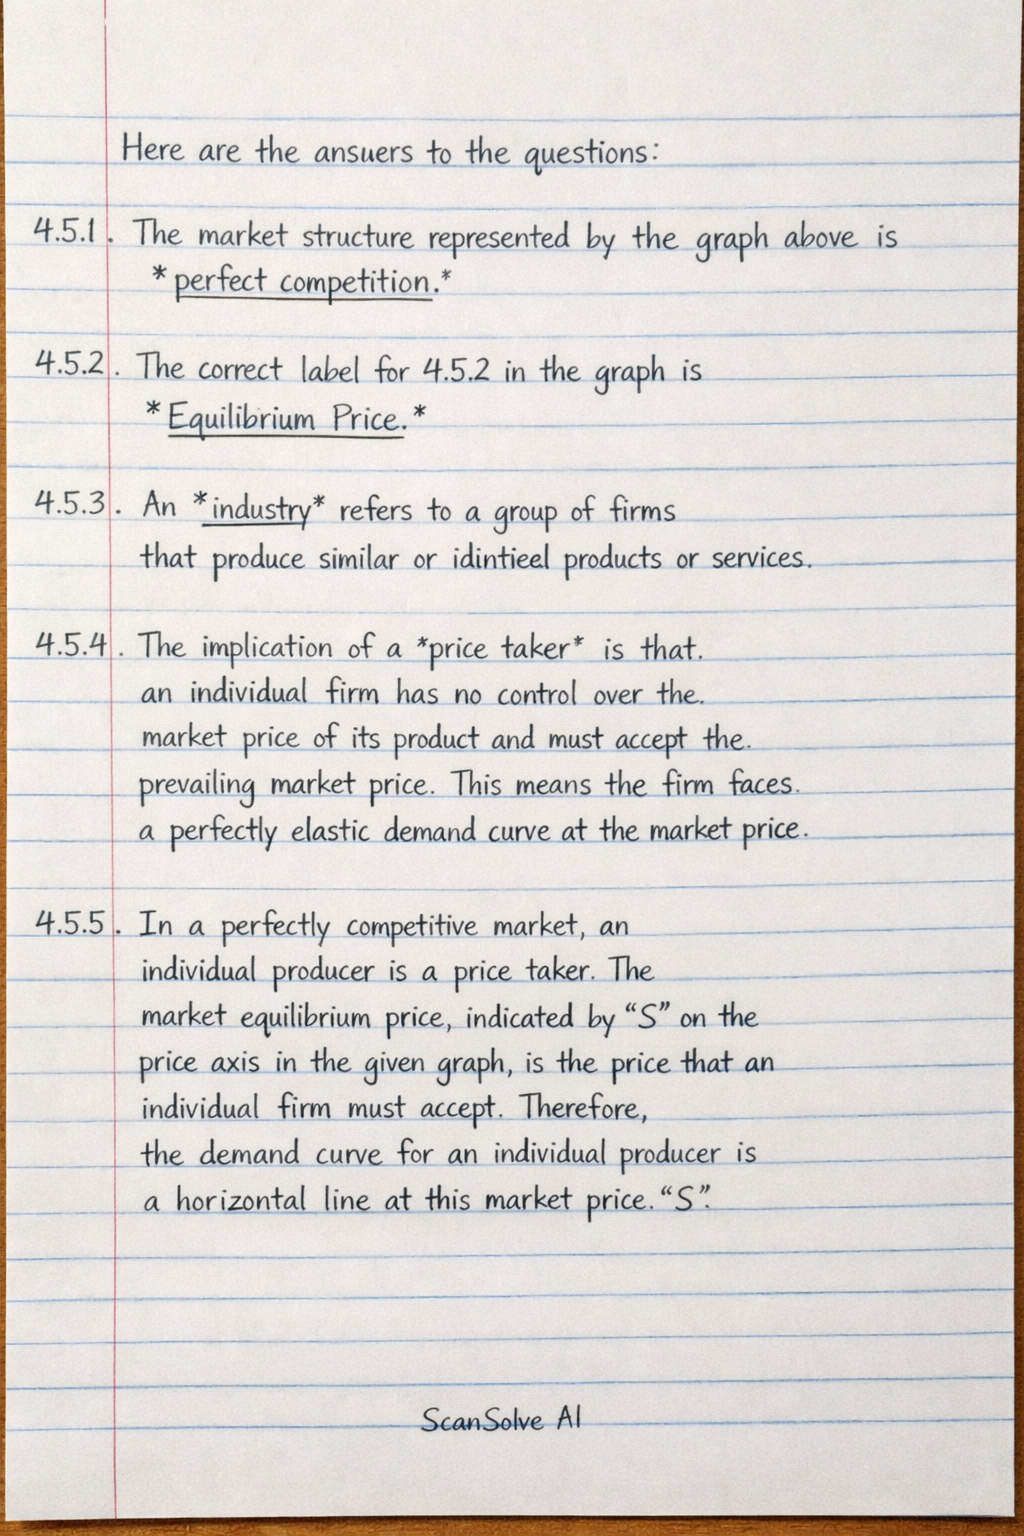 Here are the ansuers to the questions:
4.5.1. The market structure represented by the graph above is
*perfect competition.*
4.5.2. The correct label for 4.5.2 in the graph is
*Equilibrium Price.*
4.5.3. An *industry* refers to a group of firms
that produce similar or idintieel products or services.
4.5.4. The implication of a *price taker* is that.
an individual firm has no control over the.
market price of its product and must accept the.
prevailing market price. This means the firm faces.
a perfectly elastic demand curve at the market price.
4.5.5. In a perfectly competitive market, an
individual producer is a price taker. The
market equilibrium price, indicated by “S” on the
price axis in the given graph, is the price that an
individual firm must accept. Therefore,
the demand curve for an individual producer is
a horizontal line at this market price. “S”.
ScanSolve AI